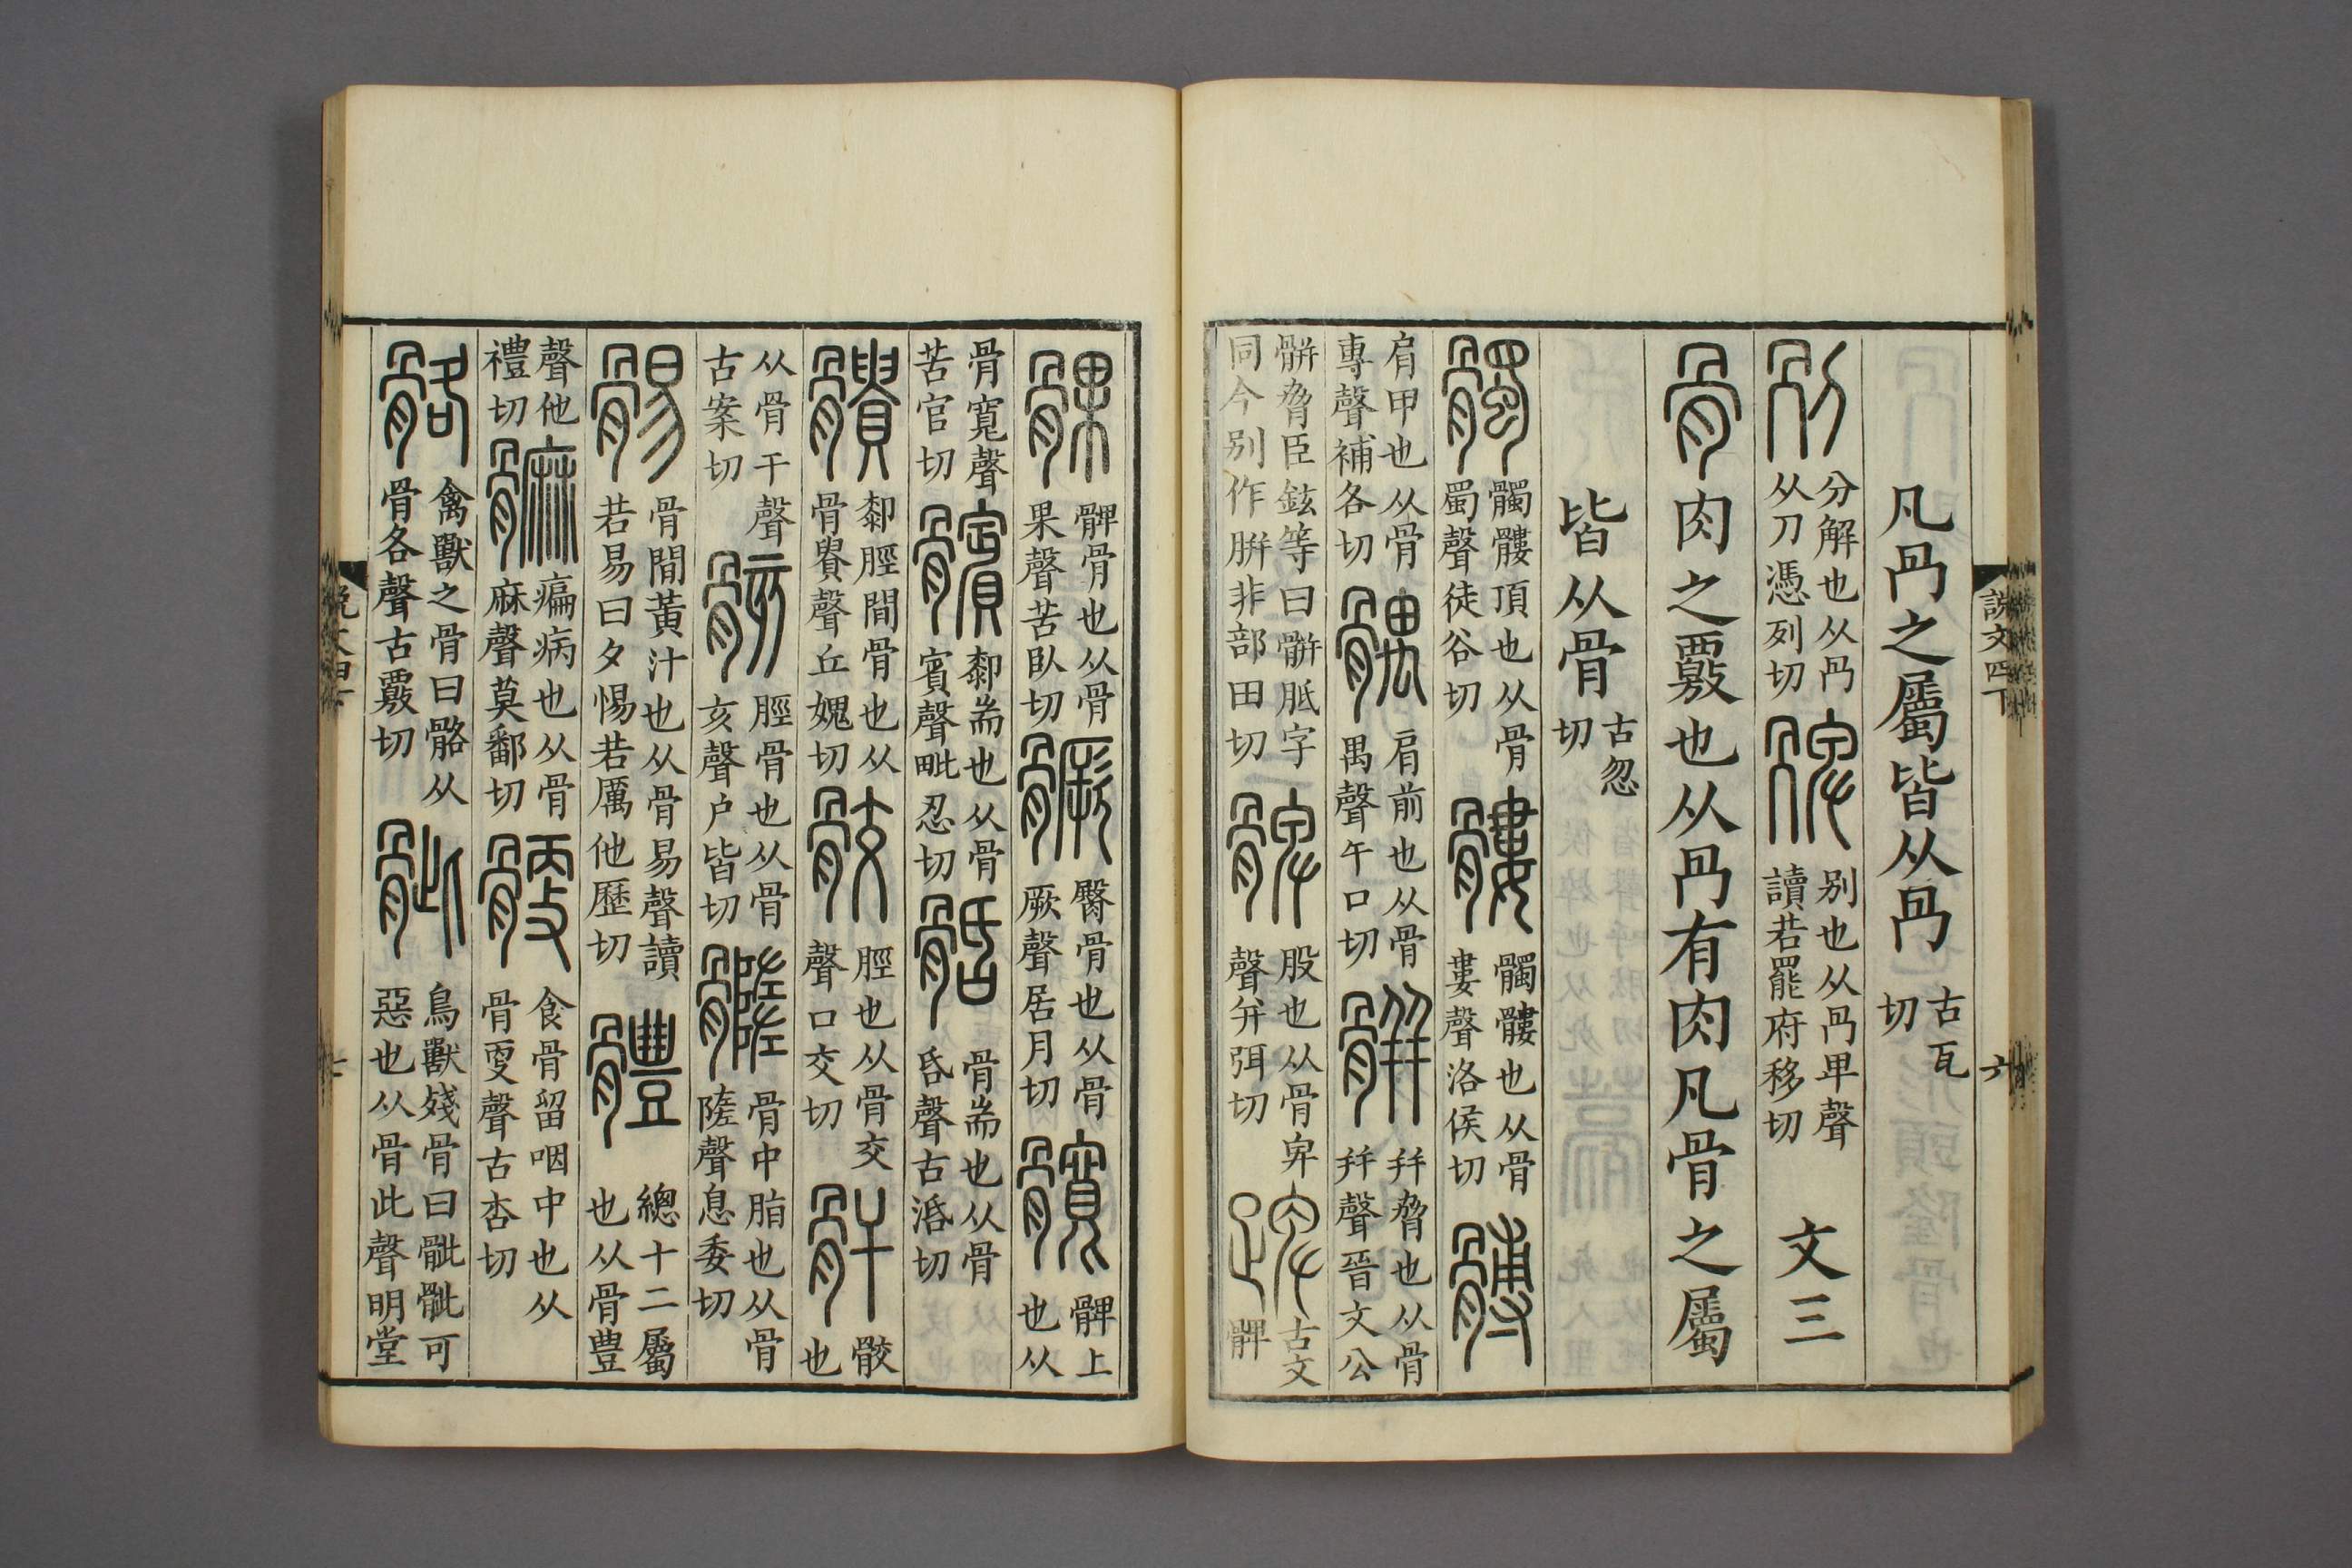 說文四下 六
凡冎之屬皆从冎古瓦切
𠛰分解也从冎从刀憑列切𠕖别也从冎卑聲讀若罷府移切文三
骨肉之覈也从冎有肉凡骨之屬
皆从骨古忽切
髑髑髏頂也从骨蜀聲徒谷切髏髑髏也从骨婁聲洛侯切髆
肩甲也从骨專聲補各切髃肩前也从骨禺聲午口切骿幷脅也从骨幷聲晉文公
骿脅臣鉉等曰骿胝字同今别作胼非部田切髀股也从骨卑聲并弭切𨂙古文髀
髁髀骨也从骨果聲苦臥切𩪗臀骨也从骨厥聲居月切髖髀上也从
骨寬聲苦官切髕厀耑也从骨賓聲毗忍切𩨷骨耑也从骨昏聲古活切
䯣厀脛間骨也从骨貴聲丘媿切骹脛也从骨交聲口交切骭骹也
从骨干聲古案切骸脛骨也从骨亥聲户皆切髓骨中脂也从骨隓聲息委切
䯜骨間黃汁也从骨易聲讀若易曰夕惕若厲他歷切體總十二屬也从骨豊
聲他禮切𩩋瘺病也从骨麻聲莫鄱切骾食骨留咽中也从骨㪅聲古杏切
骼禽獸之骨曰骼从骨各聲古覈切骴鳥獸殘骨曰骴骴可惡也从骨此聲明堂